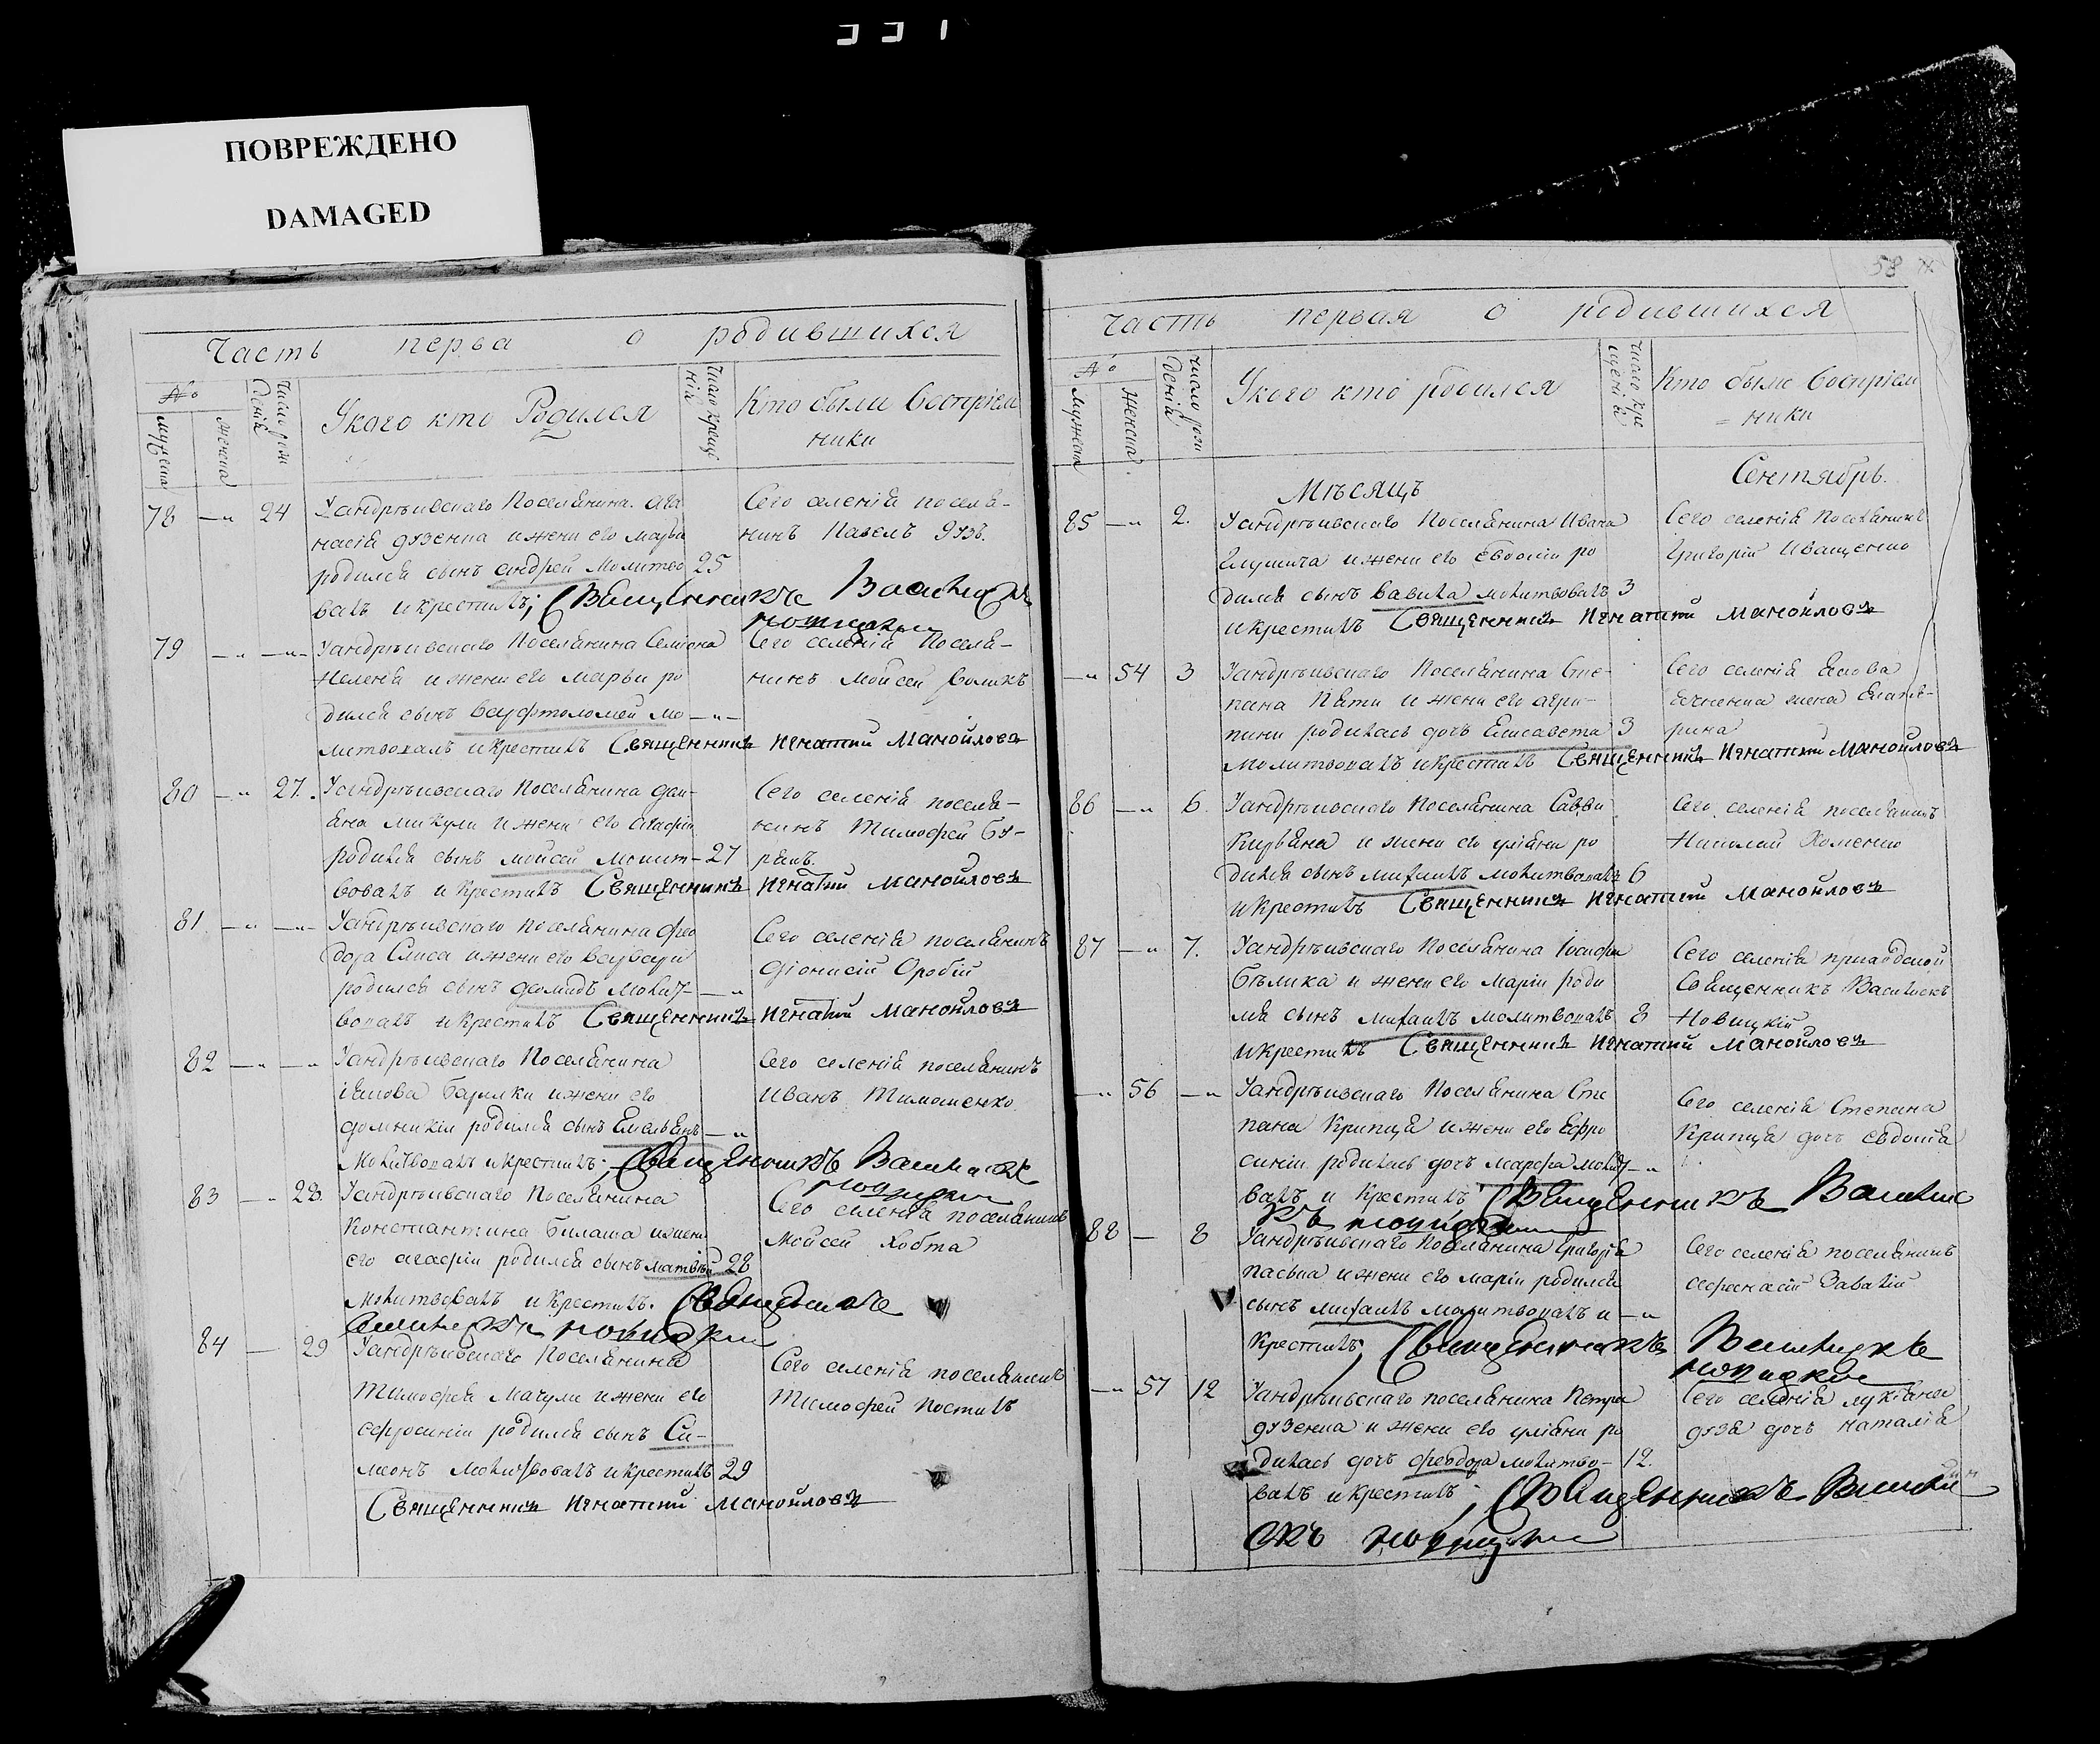 ПОВРЕЖДЕНО
DAMAGED
Часть перва о родившихся
№
мужеска
женска
Число рож
денія
У кого кто Родился
число креще
нія
Кто были воспріем
ники
78 —„ 24 Уандрѣивскаго Поселянина Афа
насія дузенка и жени его марфи
родился сынъ андрей Молитво 25
валъ и крестилъ; Священникъ Василискъ
Сего селенія поселя-
нинъ Павелъ дузъ.
Новицкій
79 —„ —„— Уандрѣивскаго Поселянина Семіона
и жени его Марфи ро
дился сынъ Варфтоломей мо —„—
литвовалъ и крестилъ Священникъ Игнатий Манойловъ
Сего селенія Поселя-
нинъ Мойсей воликъ
80 —„ 27. Уандрѣивскаго Поселянина дем-
яна микули и жени его Агафіи
родился сынъ мойсей молит- 27
вовалъ и крестилъ Священникъ Игнатий Манойловъ
Сего селенія поселя-
нинъ Тимофей Бу-
81 —„ —„— Уандрѣивскаго поселянина фео
дора Слиса и жени его варвари
родился сынъ деомидъ молит- —„
вовалъ и крестилъ Священникъ Игнатий Манойловъ
Сего селенія поселянинъ
Діонисій Оробій
82 —„ —„ Уандрѣивскаго Поселянина
іякова Барилки и жени его
домникіи родился сынъ Емельянъ —„
Молитвовалъ и крестилъ: Священникъ Василискъ
Новицкій
Сего селенія поселянинъ
Иванъ Тимошенко
83 —„ 28. Уандрѣивскаго Поселянина
Константина Билаша и жени
его агафіи родился сынъ матвѣй 28
Молитвовалъ и крестилъ. Священникъ
Василискъ Новицкій
Сего селенія поселянинъ
Мойсей Хобта
84 — 29 Уандрѣивскаго Поселянина
Тимофея Мачули и жени его
ефросиніи родился сынъ Си-
меонъ молитвовалъ и крестилъ 29
Священникъ Игнатий Манойловъ
Сего селенія поселянинъ
Тимофей Постилъ
58
Часть первая о родившихся
№
Мужеска
Женска
число рож
денія
У кого кто родился
число кре
щенія
Кто были воспріем
= ники
Мѣсяцъ Сентябрь.
85 —„ 2. Уандрѣивскаго Поселянина Ивана
Глушича и жени его Евдокіи ро
дился сынъ Вавила молитвовалъ 3
и крестилъ Священникъ Игнатий Манойловъ
Сего селенія Поселянинъ
Григорій Иващенко
—„ 54 3 Уандрѣивскаго Поселянина Сте-
пана Пяти и жени его агри-
пини родилась дочъ Елисавета 3
молитвовалъ и крестилъ Священникъ Игнатий Манойловъ
Сего селенія Якова
жена Екате-
рина
86 —„ 6. Уандрѣивскаго Поселянина Савви
Кирьяна и жени его уліяни ро
дился сынъ михаилъ молитвовалъ 6
и крестилъ Священникъ Игнатий Манойловъ
Сего селенія поселянинъ
Николай Хоменко
87 —„ 7. Уандрѣивскаго Поселянина Іосифа
Бѣлика и жени его Маріи роди
лся сынъ михаилъ молитвовалъ 8
и крестилъ Священникъ Игнатий Манойловъ
Сего селенія приходской
Священникъ Василискъ
Новицкій
—„ 56 —„ Уандрѣивскаго Поселянина Сте
пана Крипця и жени его Ефро
синіи родилась дочъ марфа молит —„
валъ и крестилъ Священникъ Васили
скъ Новицкій
Сего селенія Степана
Крипця дочъ евдокія
88 — 8 Уандрѣивскаго Поселянина Григорія
Паська и жени его маріи родился
сынъ михаилъ молитвовалъ и —„
крестилъ; Священникъ Василискъ
Новицкій
Сего селенія поселянинъ
Завалій
—„ 57 12 Уандрѣивскаго поселянина Петра
дузенка и жени его уліяни ро
дилась дочъ феодора молитво- 12.
валъ и крестилъ; Священникъ Васили
скъ Новицкій
Сего селенія лукіяна
дуза дочъ Наталія